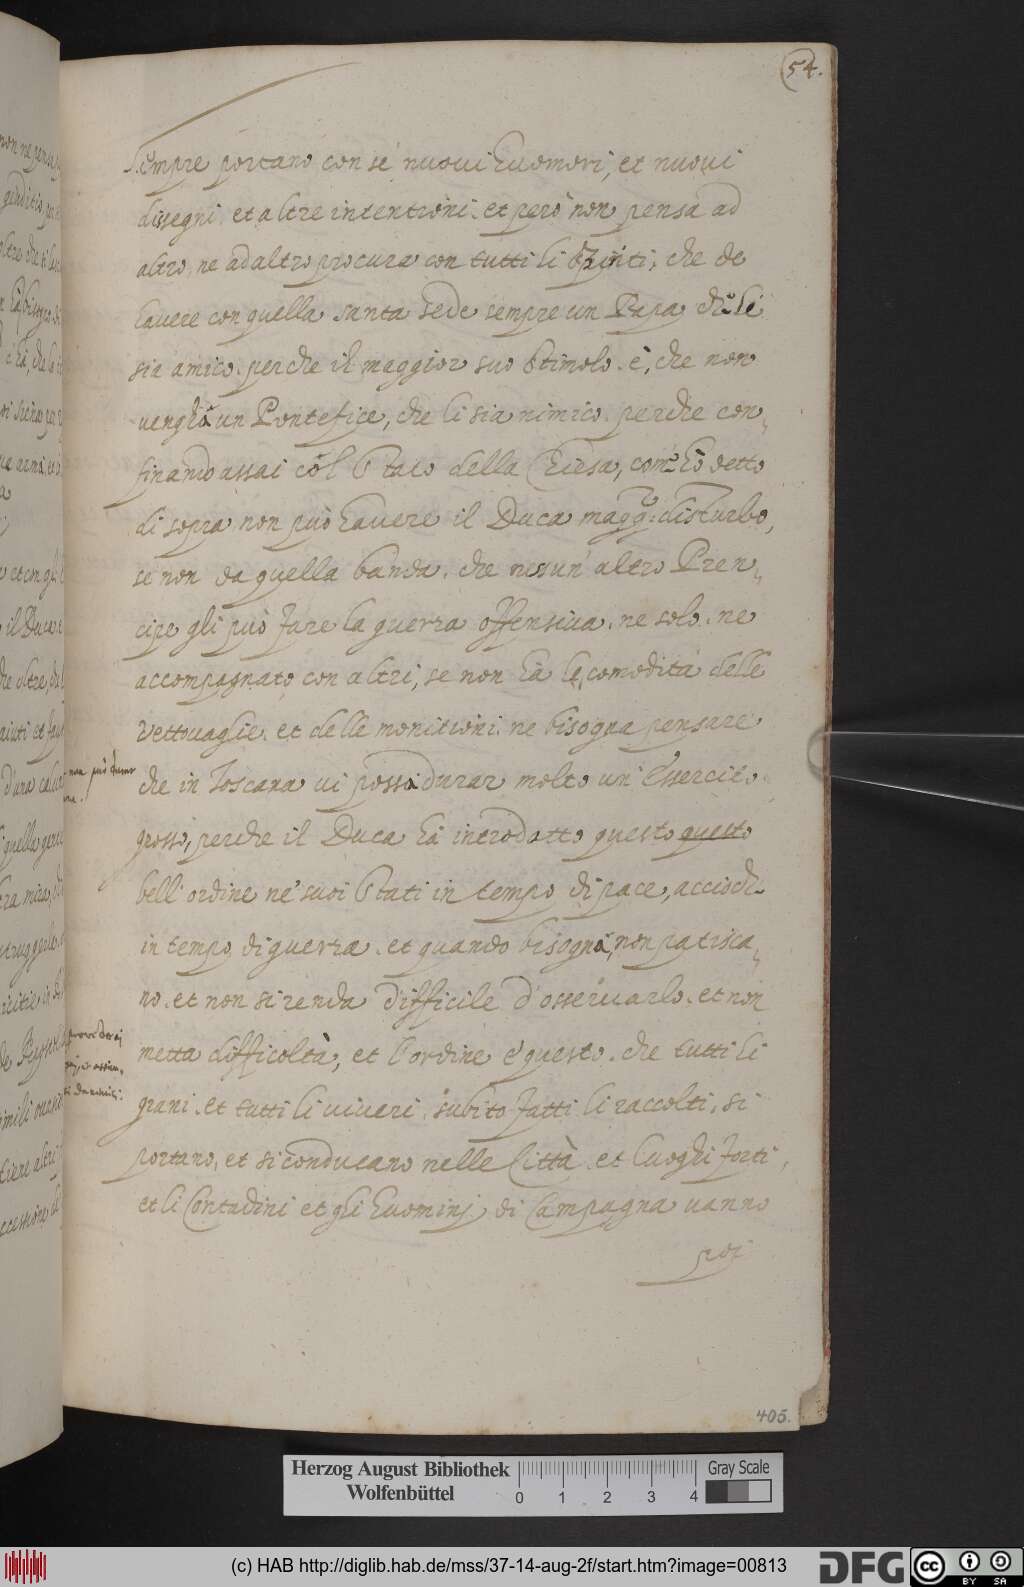 54.
Sempre portano con sé nuoui huomori, et nuoui
dissegni et altre intentioni. et però non pensa ad
altro, ne ad altro procura con tutti li spiriti, che de
hauere con quella santa sede sempre un Papa che li
sia amico. perche il maggior suo stimolo è, che non
uengha un Pontefice, che li sia nimico. perche con„
finando assai col stato della Chiesa, com' hò detto
di sopra non può hauere il Duca magg.r disturbo,
se non da quella banda. che nessun' altro Pren„
cipe gli può fare la guerra offensiua. ne solo. ne
accompagnato con altri, se non hà le comodità delle
vettouaglie. et delle monitioni. ne bisogna pensare
che in Toscana ui possa durar molto un' essercito
grosso, perche il Duca hà introdotto questo questo
bell' ordine ne' suoi stati in tempo di pace, accioche
in tempo di guerra. et quando bisogna, non patisca„
no. et non si renda difficile d'osseruarlo. et non
metta difficoltà, et l'ordine è questo. che tutti li
grani. et tutti li uiueri. subito fatti li raccolti, si
portano, et si conducano nelle Città. et luoghi forti,
et li Contadini et gli huomini di Campagna uanno
poi
405.
Herzog August Bibliothek
Wolfenbüttel
0 1 2 3 4
Gray Scale
(c) HAB http://diglib.hab.de/mss/37-14-aug-2f/start.htm?image=00813
DFG
cc BY SA